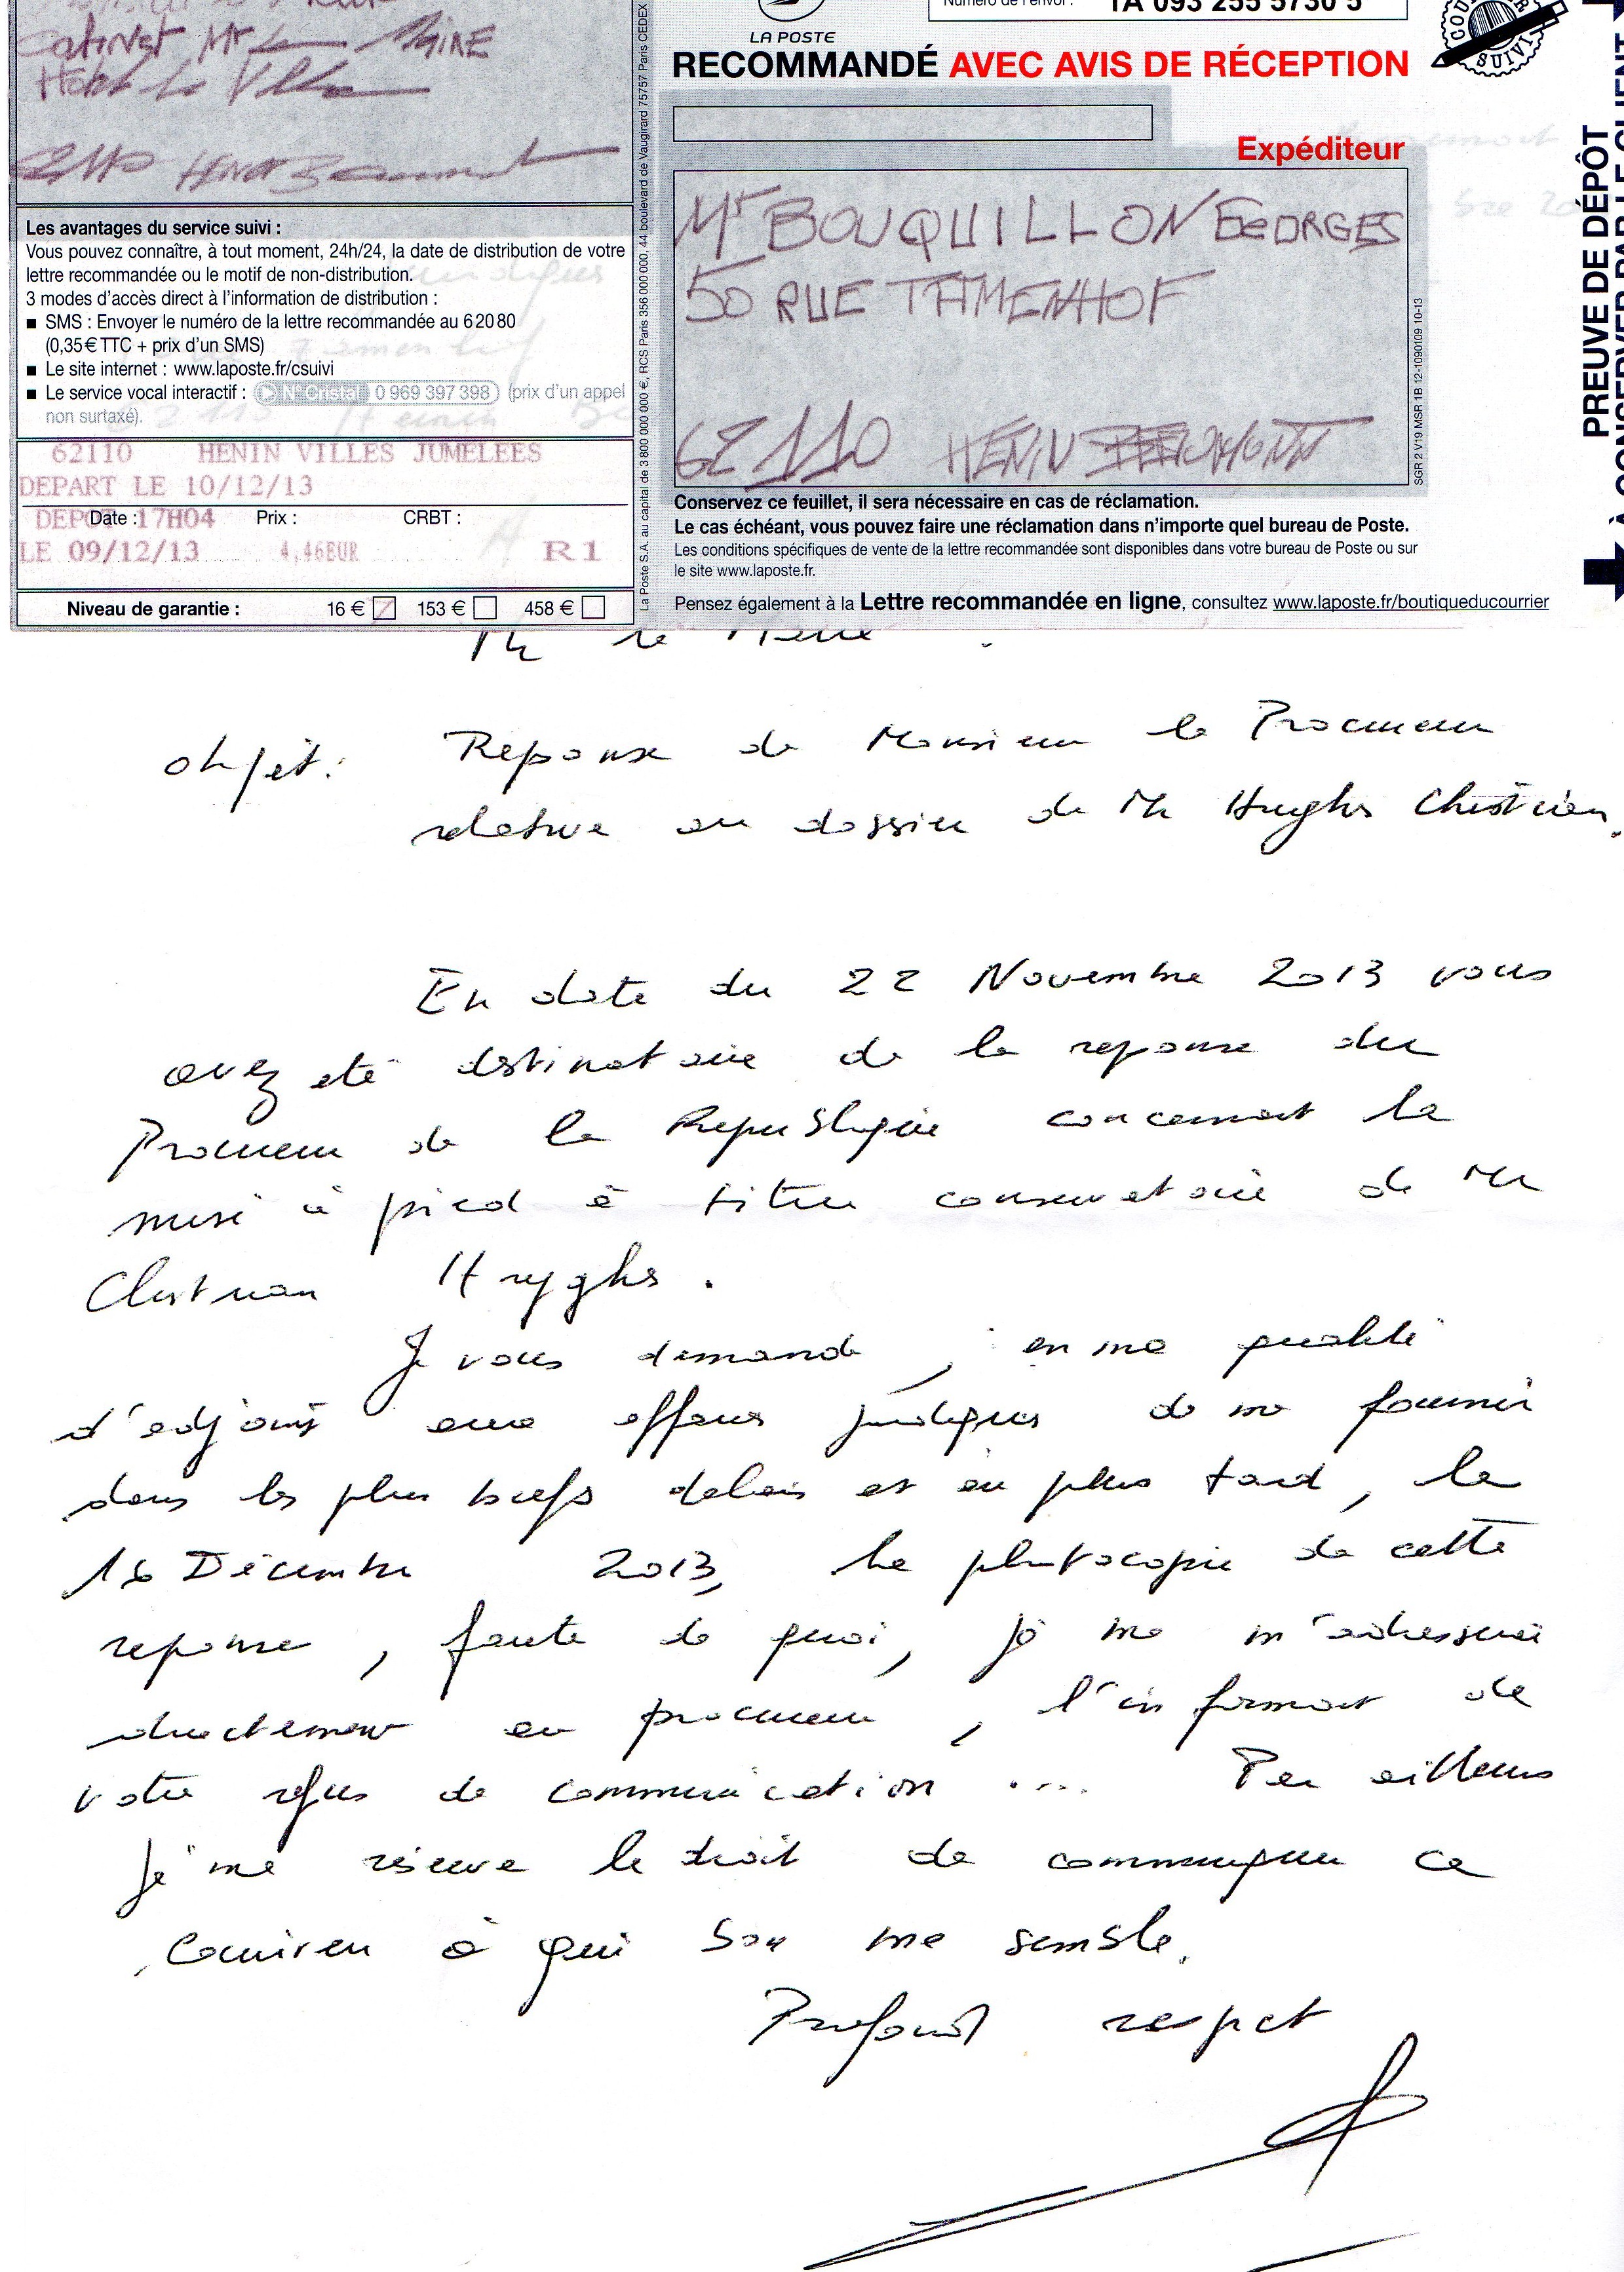 Cabinet Mr Le MAIRE
Hotel de Ville
LA POSTE
Numéro de l'envoi : 1A 093 255 5730 5
RECOMMANDÉ AVEC AVIS DE RÉCEPTION
Expéditeur
Mr BOUQUILLON GEORGES
50 RUE ZAMENHOF
62110 HENIN BEAUMONT
Les avantages du service suivi :
Vous pouvez connaître, à tout moment, 24h/24, la date de distribution de votre
lettre recommandée ou le motif de non-distribution.
3 modes d'accès direct à l'information de distribution :
■ SMS : Envoyer le numéro de la lettre recommandée au 6 20 80
(0,35 € TTC + prix d'un SMS)
■ Le site internet : www.laposte.fr/csuivi
■ Le service vocal interactif : N° Cristal 0 969 397 398 (prix d'un appel
non surtaxé).
62110 HENIN VILLES JUMELEES
DEPART LE 10/12/13
DEPOT 17H04 Date : Prix : CRBT :
LE 09/12/13 4,46EUR R1
Niveau de garantie : 16 € 153 € 458 €
La Poste S.A. au capital de 3 800 000 000 €, RCS Paris 356 000 000, 44 boulevard de Vaugirard 75757 Paris CEDEX
SGR 2 V19 MSR 1B 12-1090109 10-13
Conservez ce feuillet, il sera nécessaire en cas de réclamation.
Le cas échéant, vous pouvez faire une réclamation dans n'importe quel bureau de Poste.
Les conditions spécifiques de vente de la lettre recommandée sont disponibles dans votre bureau de Poste ou sur
le site www.laposte.fr.
Pensez également à la Lettre recommandée en ligne, consultez www.laposte.fr/boutiqueducourrier
PREUVE DE DÉPÔT
À CONSERVER PAR LE CLIENT
Mr le Maire
objet : Reponse de Monsieur le Procureur
relative au dossier de Mr Hryghs Christian.
En date du 22 Novembre 2013 vous
avez eté destinataire de la reponse du
Procureur de la Republique concernant la
mise à pied à titre conservatoire de Mr
Christian Hryghs.
Je vous demande, en ma qualité
d'adjoint aux affaires juridiques de me fournir
dans les plus brefs delais et au plus tard, le
16 Décembre 2013, la photocopie de cette
reponse, faute de quoi, je me m'adresserai
directement au procureur, l'informant de
votre refus de communication .... Par ailleurs
Je me réserve le droit de communiquer ce
courrier à qui bon me semble.
Profond respect